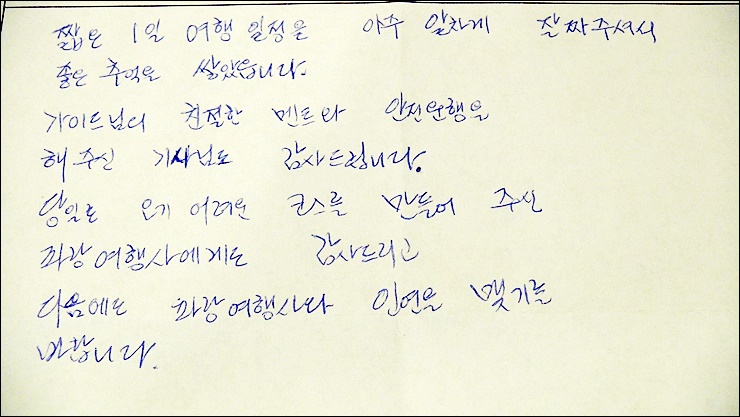 짧은 1일 여행 일정을 아주 알차게 잘 짜주셔서
좋은 추억을 쌓았습니다.
가이드님의 친절한 멘트와 안전운행을
해 주신 기사님도 감사드립니다.
당일로 오기 어려운 코스를 만들어 주신
파랑여행사에게도 감사드리고
다음에도 파랑여행사와 인연을 맺기를
바랍니다.